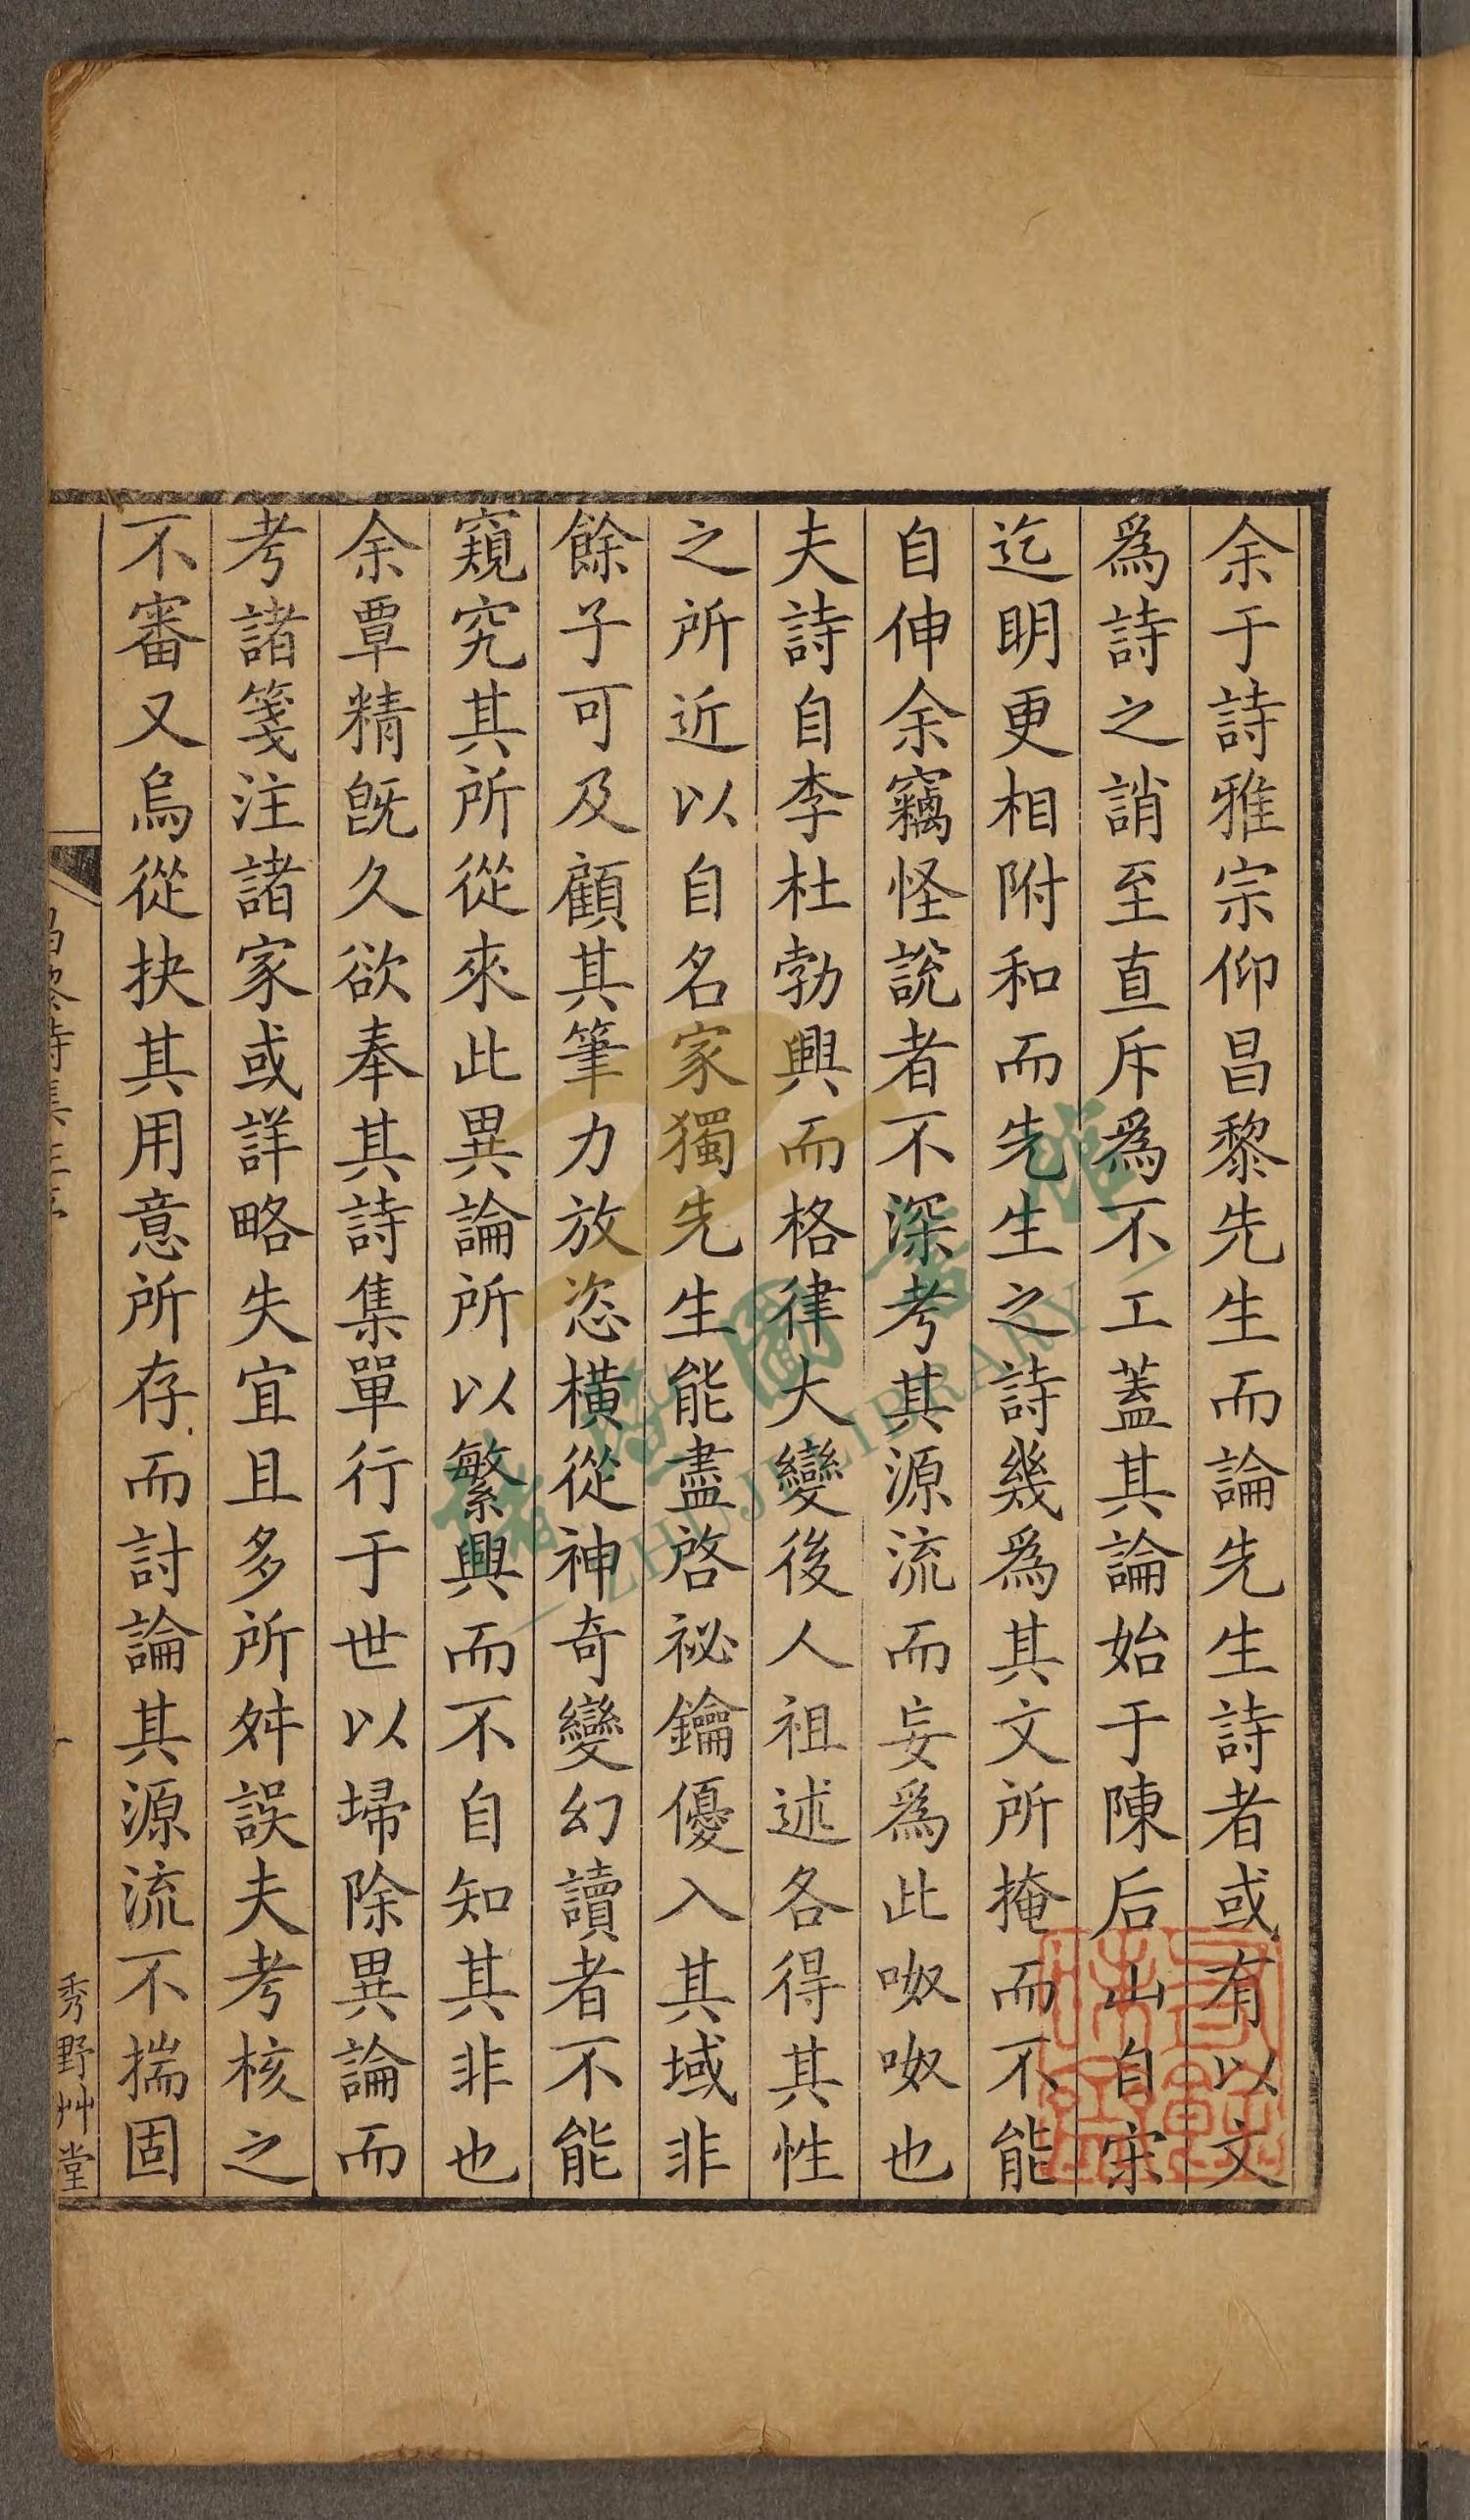 余于詩雅宗仰昌黎先生而論先生詩者或有以文
爲詩之誚至直斥爲不工蓋其論始于陳后山自宋
迄明更相附和而先生之詩幾爲其文所掩而不能
自伸余竊怪説者不深考其源流而妄爲此呶呶也
夫詩自李杜勃興而格律大變後人祖述各得其性
之所近以自名家獨先生能盡啓祕鑰優入其域非
餘子可及顧其筆力放恣橫從神奇變幻讀者不能
窺究其所從來此異論所以繁興而不自知其非也
余覃精旣久欲奉其詩集單行于世以埽除異論而
考諸箋注諸家或詳略失宜且多所舛誤夫考核之
不審又烏從抉其用意所存而討論其源流不揣固
秀野艸堂
諸暨圖書館
ZHUJI LIBRARY